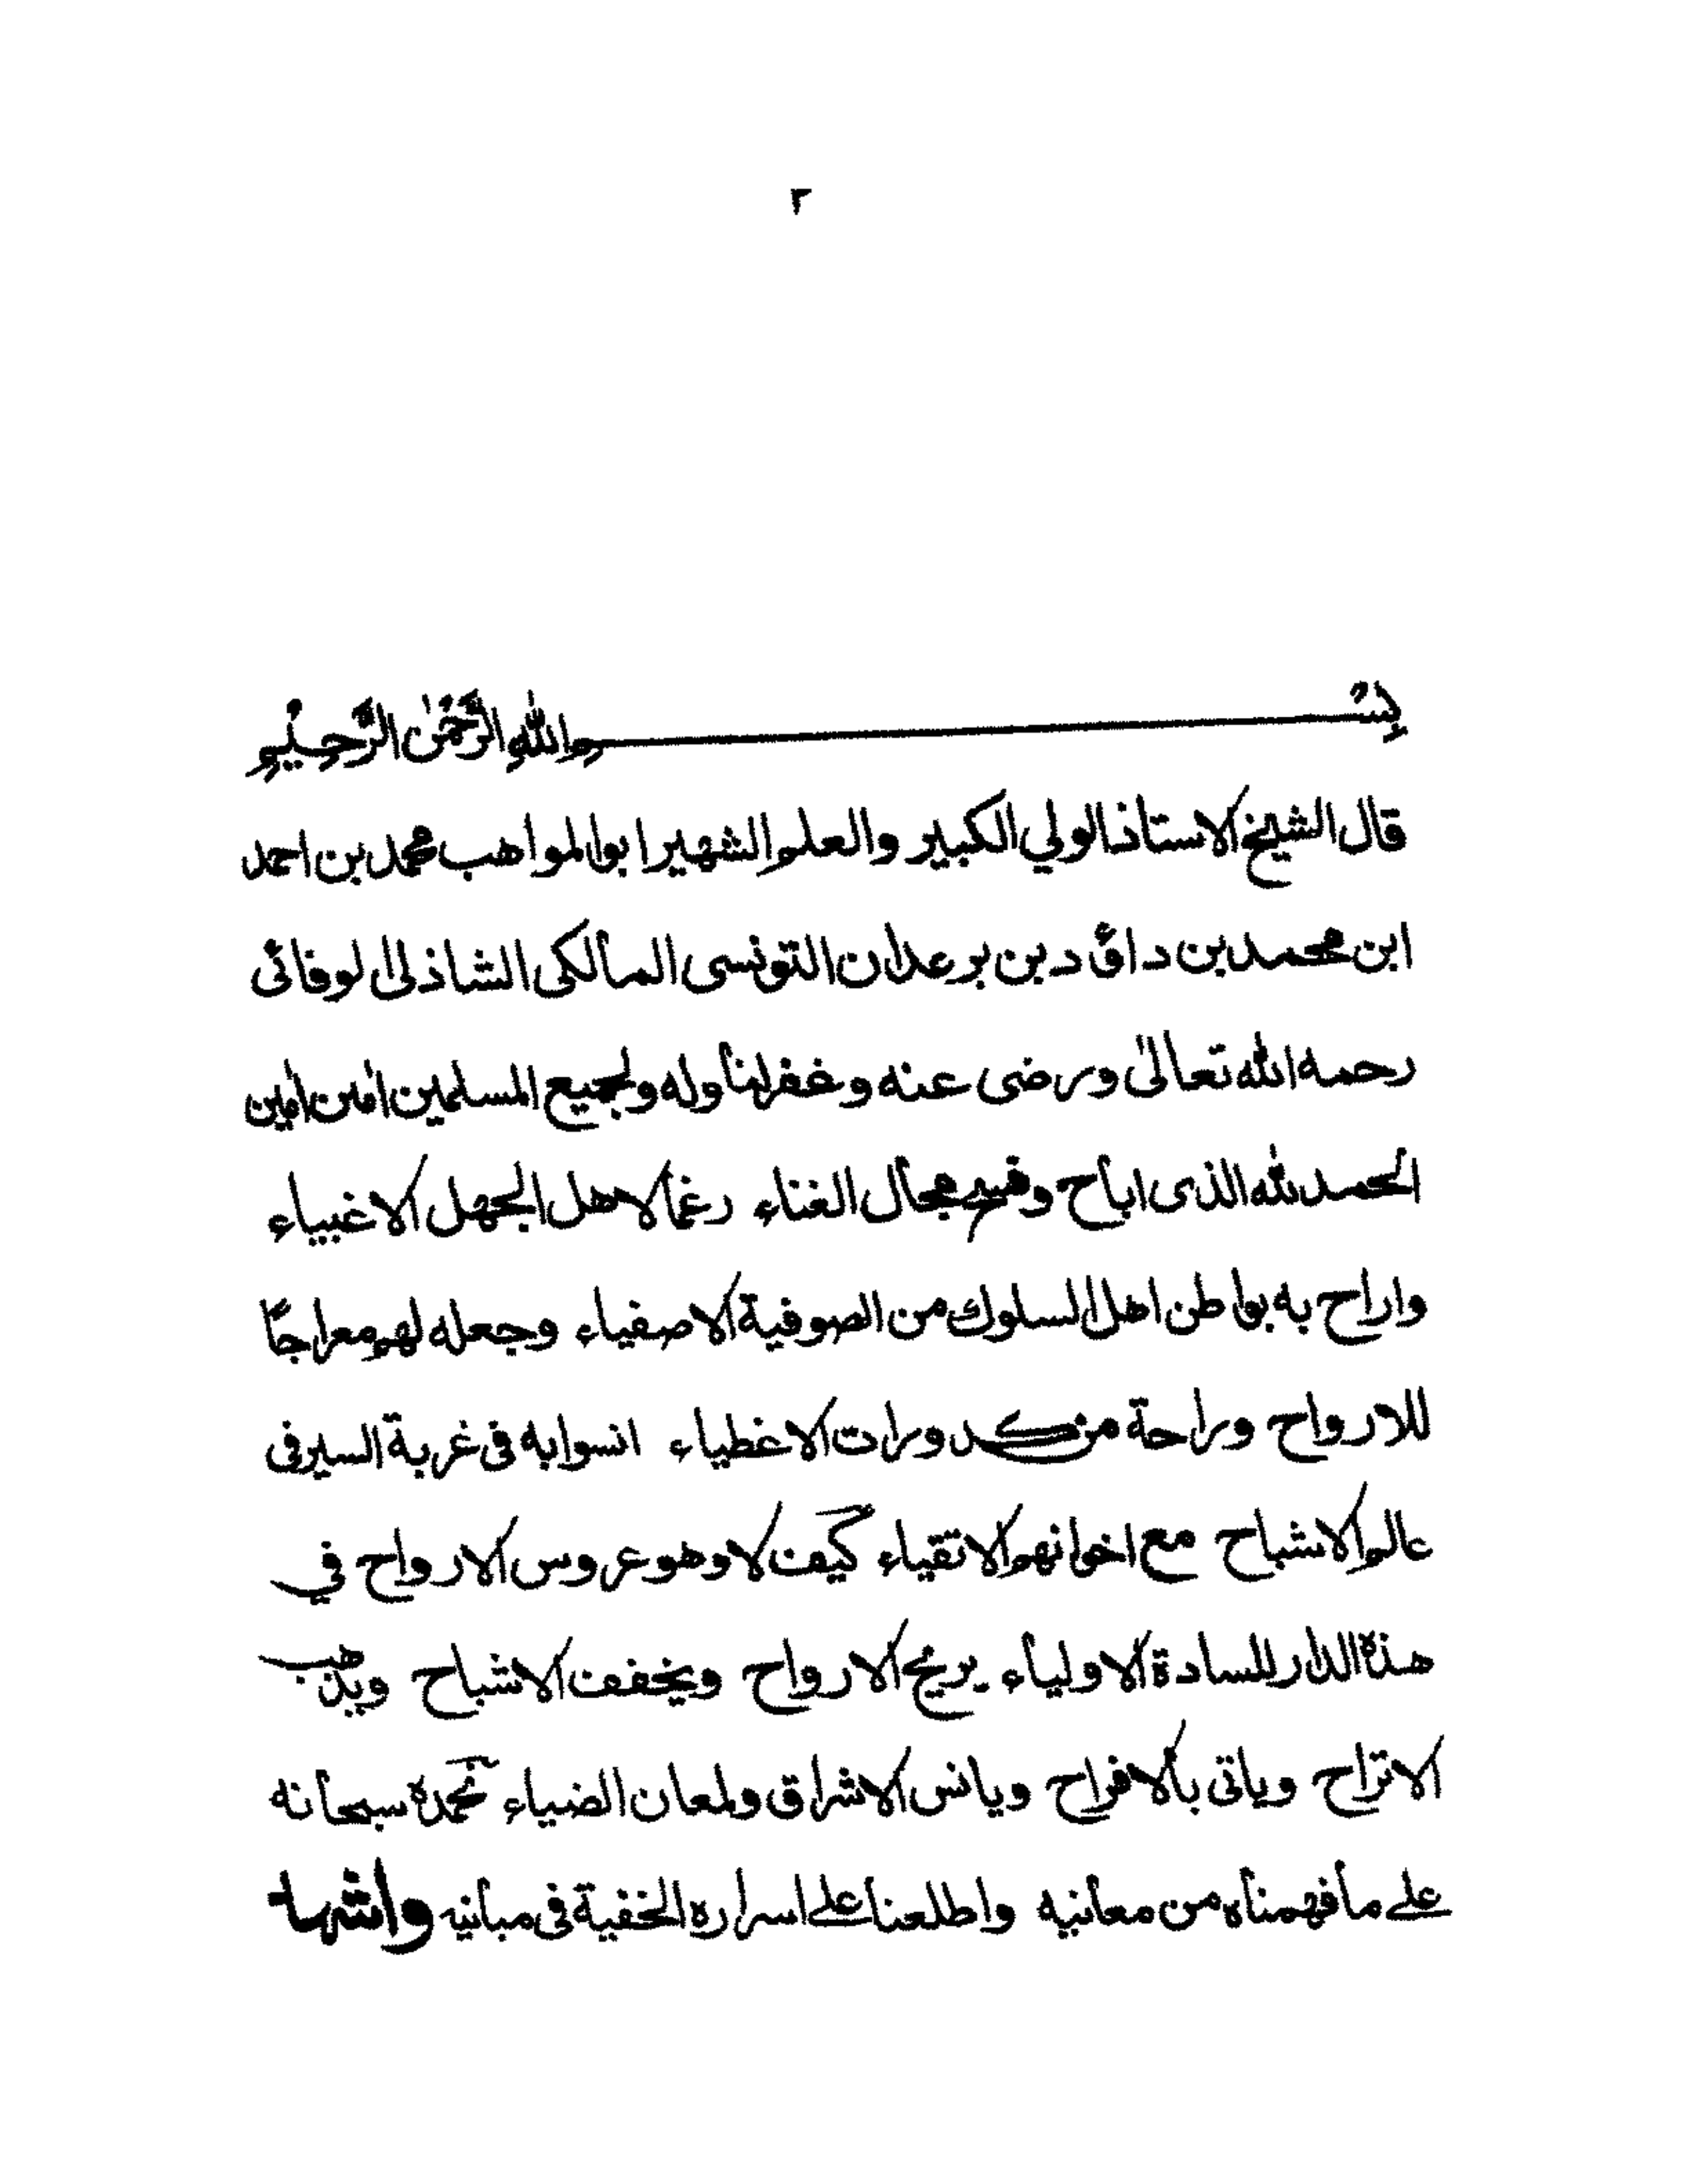 ٢
بِسْمِ اللهِ الرَّحْمٰنِ الرَّحِيْمِ
قال الشيخ الاستاذ الولي الكبير والعلم الشهير ابو المواهب محمد بن احمد
ابن محمد بن داؤد بن بر عدان التونسى المالكى الشاذلى الوفائى
رحمه الله تعالىٰ ورضى عنه وغفر لنا وله ولجميع المسلمين اٰمين اٰمين
الحمد لله الذى اباح وفسح مجال الغناء رغما لاهل الجهل الاغبياء
واراح به بواطن اهل السلوك من الصوفية الاصفياء وجعله لهم معراجًا
للارواح وراحة من كدورات الاغطياء انسوا به فى غربة السير فى
عالم الاشباح مع اخوانهم الاتقياء كيف لا وهو عروس الارواح في
هذه الدار للسادة الاولياء يريح الارواح ويخفف الاشباح ويذهب
الاتراح وياتى بالافراح ويانس الاشراق ولمعان الضياء نحمده سبحانه
على ما فهمناه من معانيه واطلعنا على اسراره الخفية فى مبانيه واشهد